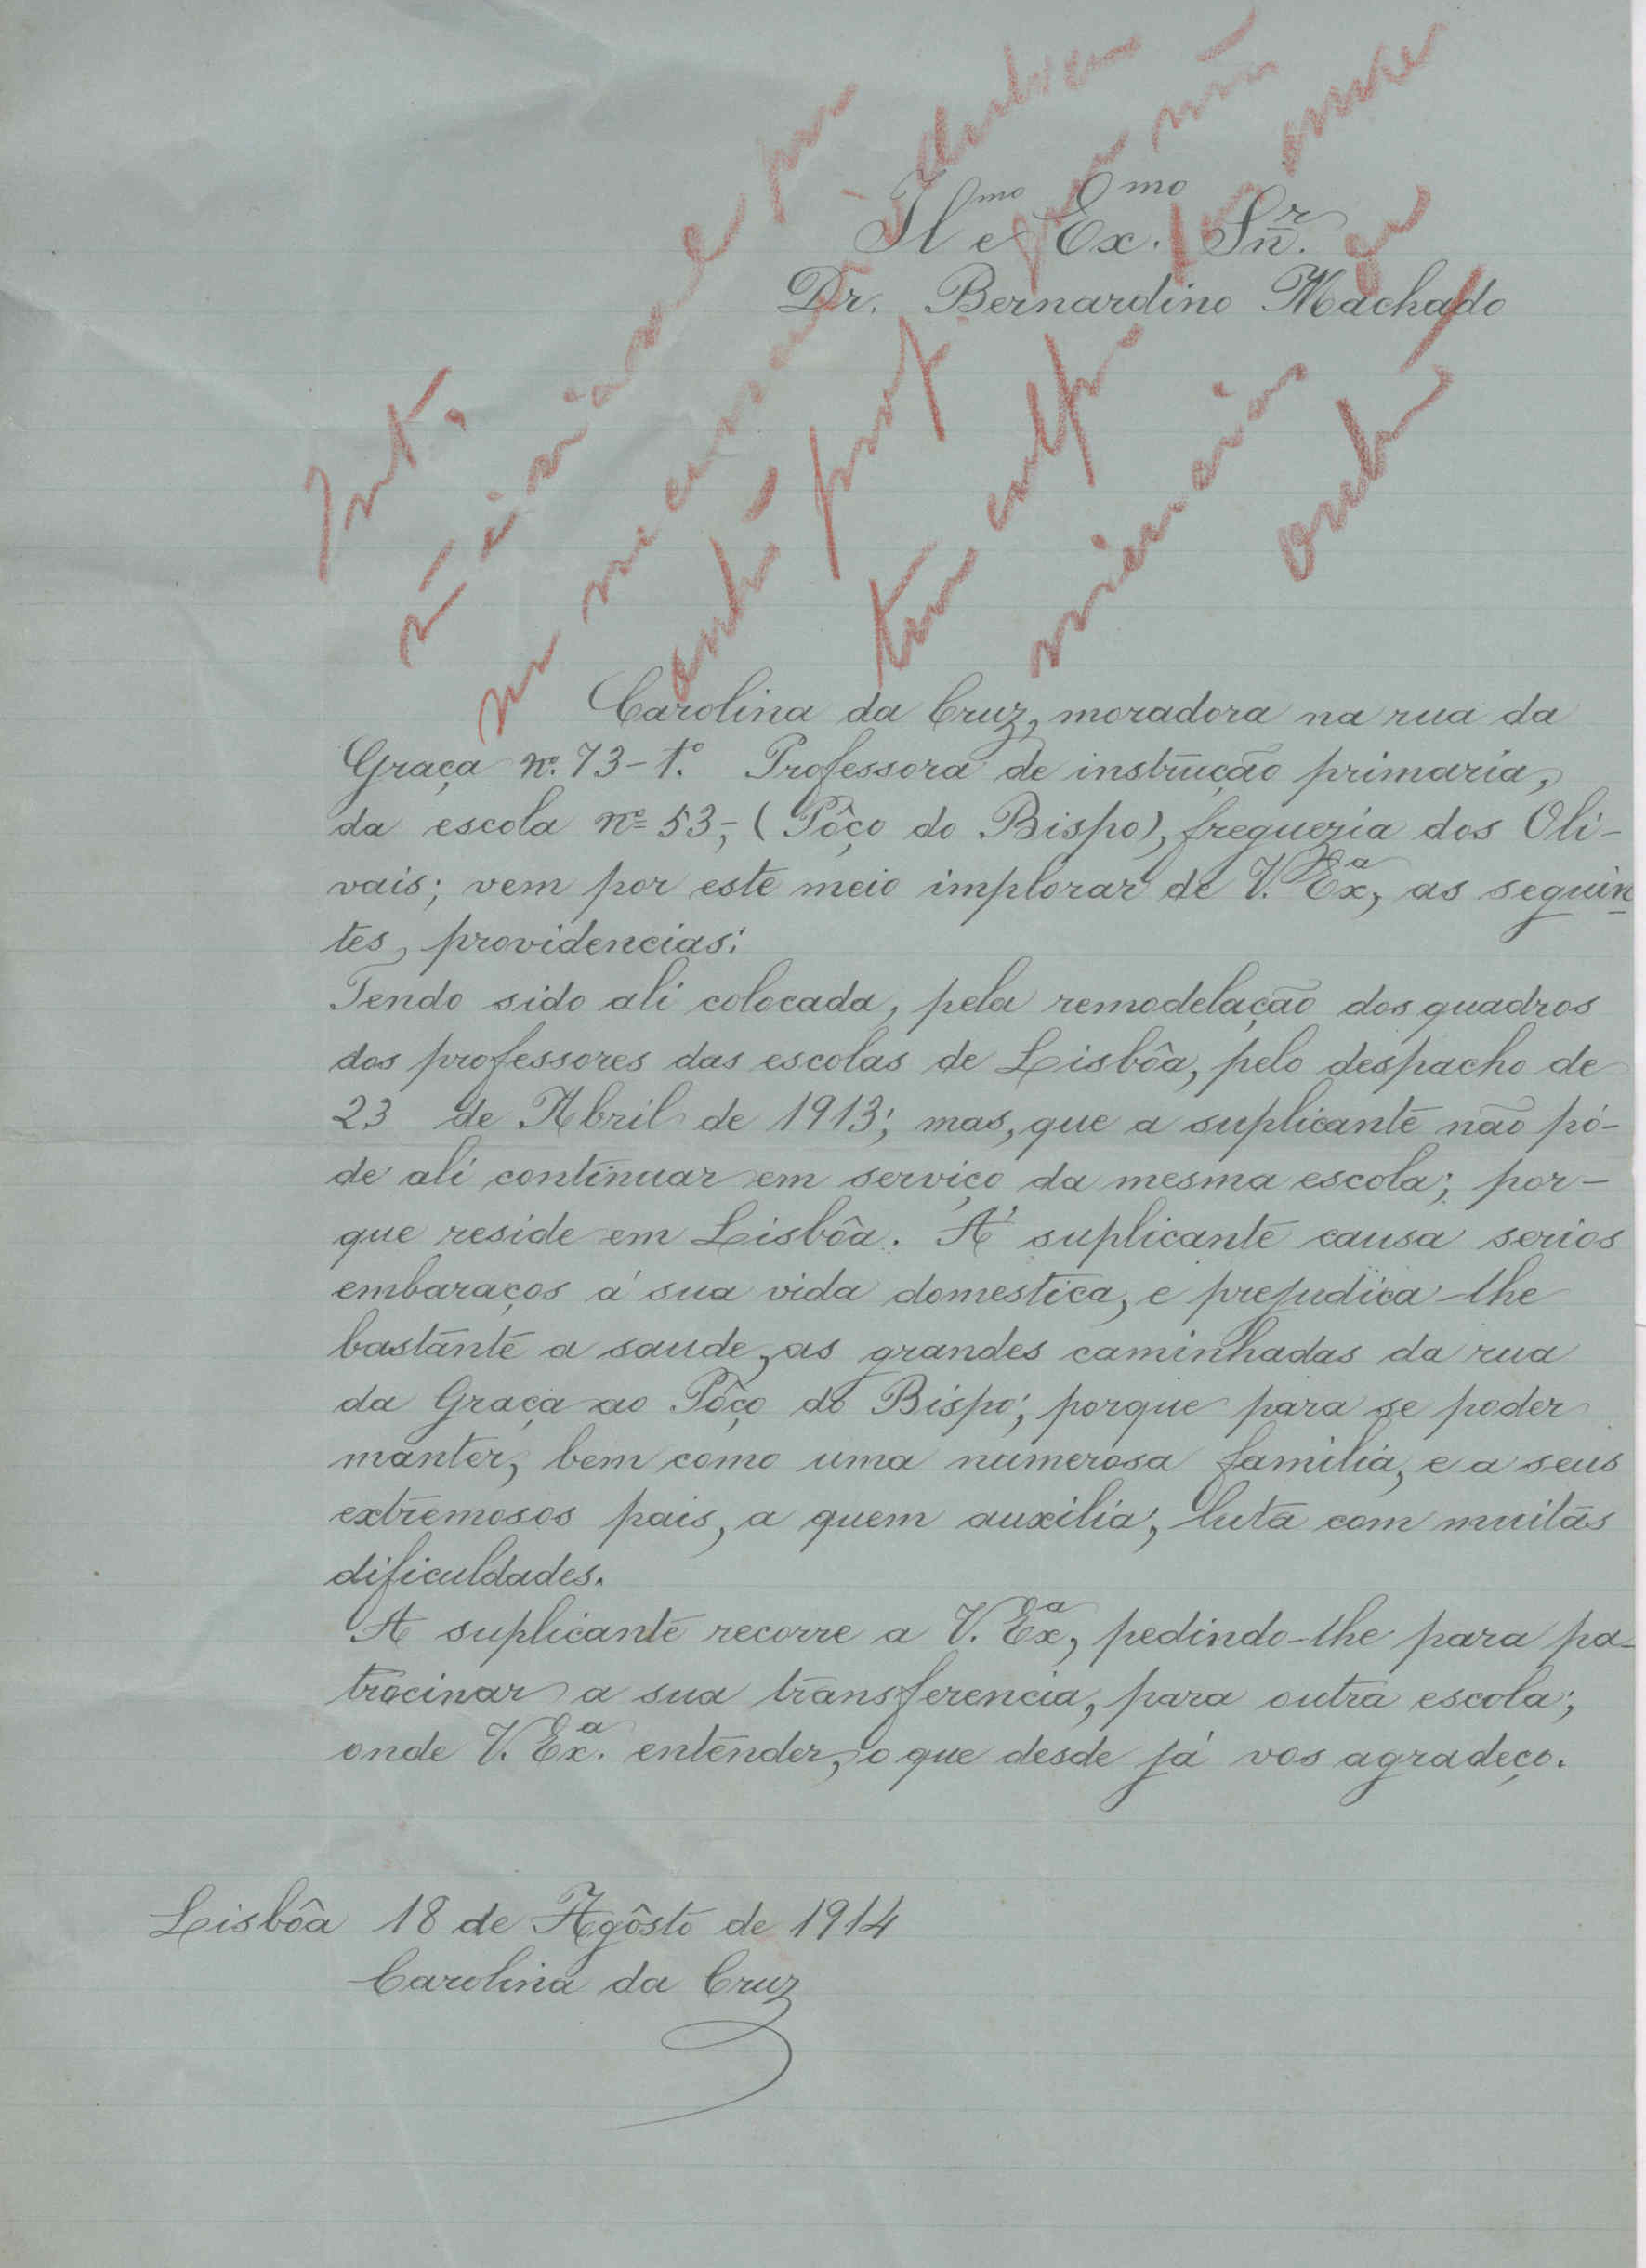 Il^mo e Ex.^mo Sñr.
Dr. Bernardino Machado
Inst.
Carolina da Cruz, moradora na rua da
Graça nº. 73-1.º Professora de instrução primaria,
da escola nº 53,- (Pôço do Bispo), freguezia dos Oli-
vais; vem por este meio implorar de V. Exª, as seguin
tes, providencias:
Tendo sido ali colocada, pela remodelação dos quadros
dos professores das escolas de Lisbôa, pelo despacho de
23 de Abril de 1913; mas, que a suplicante não pó-
de ali continuar em serviço da mesma escola; por-
que reside em Lisbôa. Á suplicante causa serios
embaraços á sua vida domestica, e prejudica-lhe
bastante a saude, as grandes caminhadas da rua
da Graça ao Pôço do Bispo; porque para se poder
manter, bem como uma numerosa familia, e a seus
extremosos pais, a quem auxilia; luta com muitas
dificuldades.
A suplicante recorre a V. Exª, pedindo-lhe para pa-
trocinar a sua transferencia, para outra escola;
onde V. Exª. entender, o que desde já vos agradeço.
Lisbôa 18 de Agôsto de 1914
Carolina da Cruz